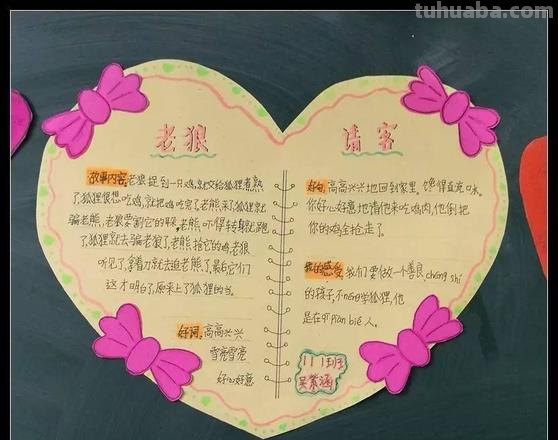 tuhuaba.com
老狼 请客
故事内容:老狼捉到一只鸡,就交给狐狸煮熟
了,狐狸很想吃鸡,就把鸡吃完了,老熊来了,狐狸就
骗老熊,老狼要割它的
老熊吓得转身就跑
了,狐狸就去骗老狼了,老熊抢它的鸡,老狼
听见了,拿着刀就去追老熊了,最后它们
这才明白了,原来上了狐狸的当。
好词:高高兴兴
雪亮雪亮
好心好意
好句:高高兴兴地回到家里。馋得直流口水。
你好心好意地请他来吃鸡肉,他倒把
你的鸡全抢走了。
我的感受:我们要做一个善良、chéng shí
的孩子,不néng学狐狸,他
是在 piàn bié人。
111班
吴紫涵